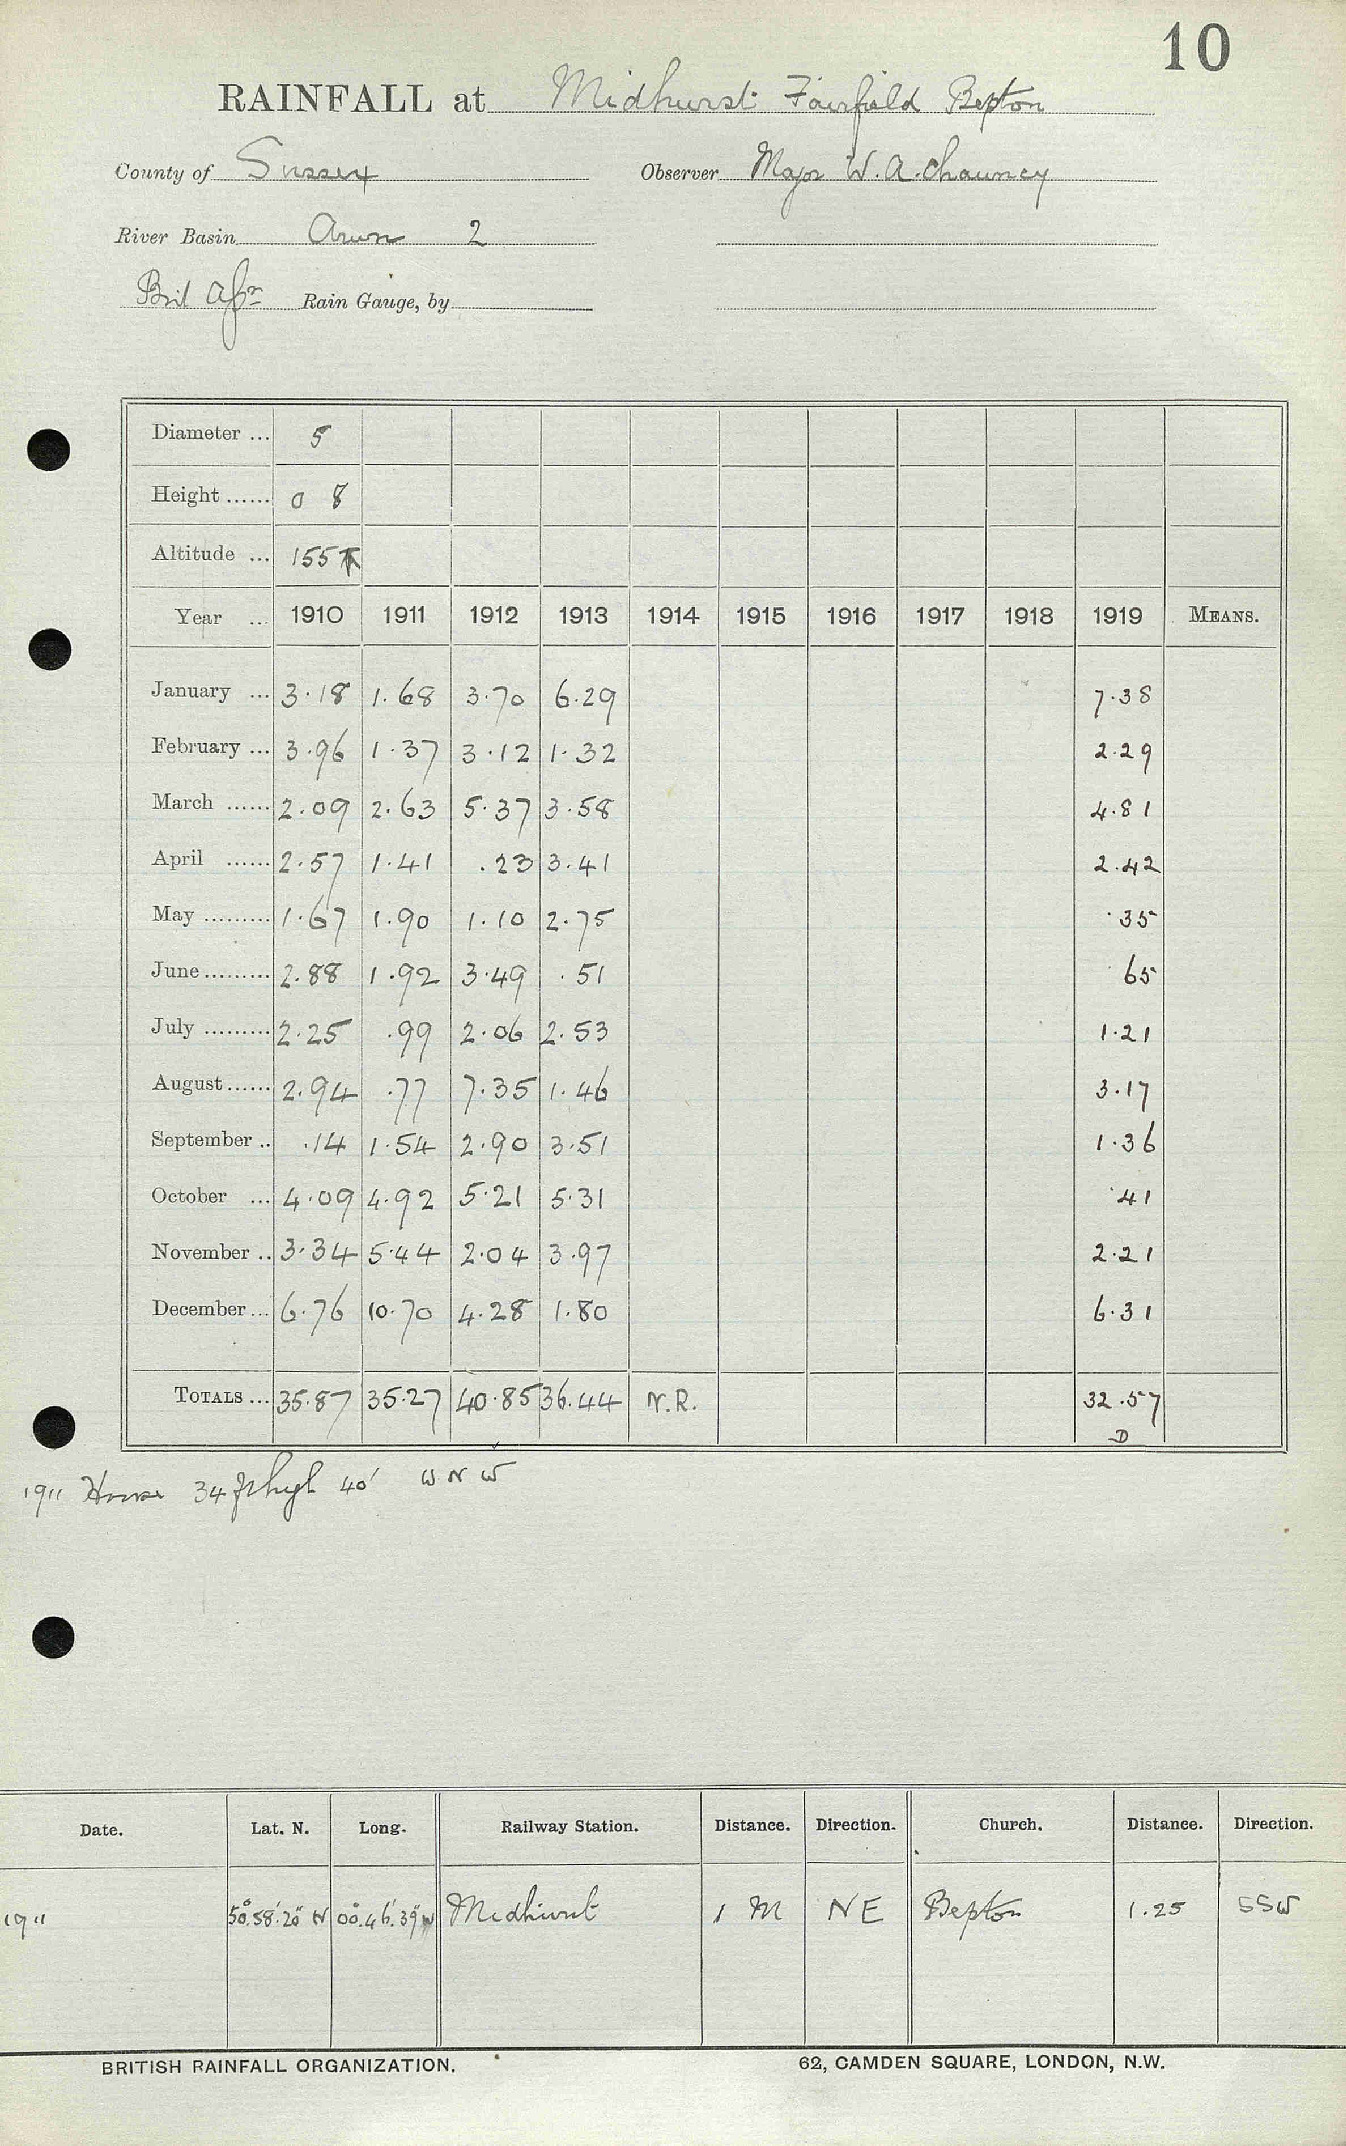 10
RAINFALL at Midhurst Fairfield Bepton
County of Sussex Observer Major W. A. Chauncy
River Basin Arun 2
Rain Gauge, by
Diameter ... 5
Height ...... 0 8
Altitude ... 155
Year ... 1910 1911 1912 1913 1914 1915 1916 1917 1918 1919 MEANS.
January ... 3.18 1.68 3.70 6.29 7.38
February ... 3.96 1.37 3.12 1.32 2.29
March ...... 2.09 2.63 5.37 3.58 4.81
April ...... 2.57 1.41 .23 3.41 2.42
May ......... 1.67 1.90 1.10 2.75 .35
June ......... 2.88 1.92 3.49 .51 .65
July ......... 2.25 .99 2.06 2.53 1.21
August ...... 2.94 .77 7.35 1.46 3.17
September .. .14 1.54 2.90 3.51 1.36
October ... 4.09 4.92 5.21 5.31 .41
November .. 3.34 5.44 2.04 3.97 2.21
December ... 6.76 10.70 4.28 1.80 6.31
TOTALS ... 35.87 35.27 40.85 36.44 N.R. 32.57
D
1911 House 34 ft high 40' WNW
Date. Lat. N. Long. Railway Station. Distance. Direction. Church. Distance. Direction.
1911 50°.58'.20" N 00°.46'.39" W Midhurst 1 M NE Bepton 1.25 SSW
BRITISH RAINFALL ORGANIZATION. 62, CAMDEN SQUARE, LONDON, N.W.